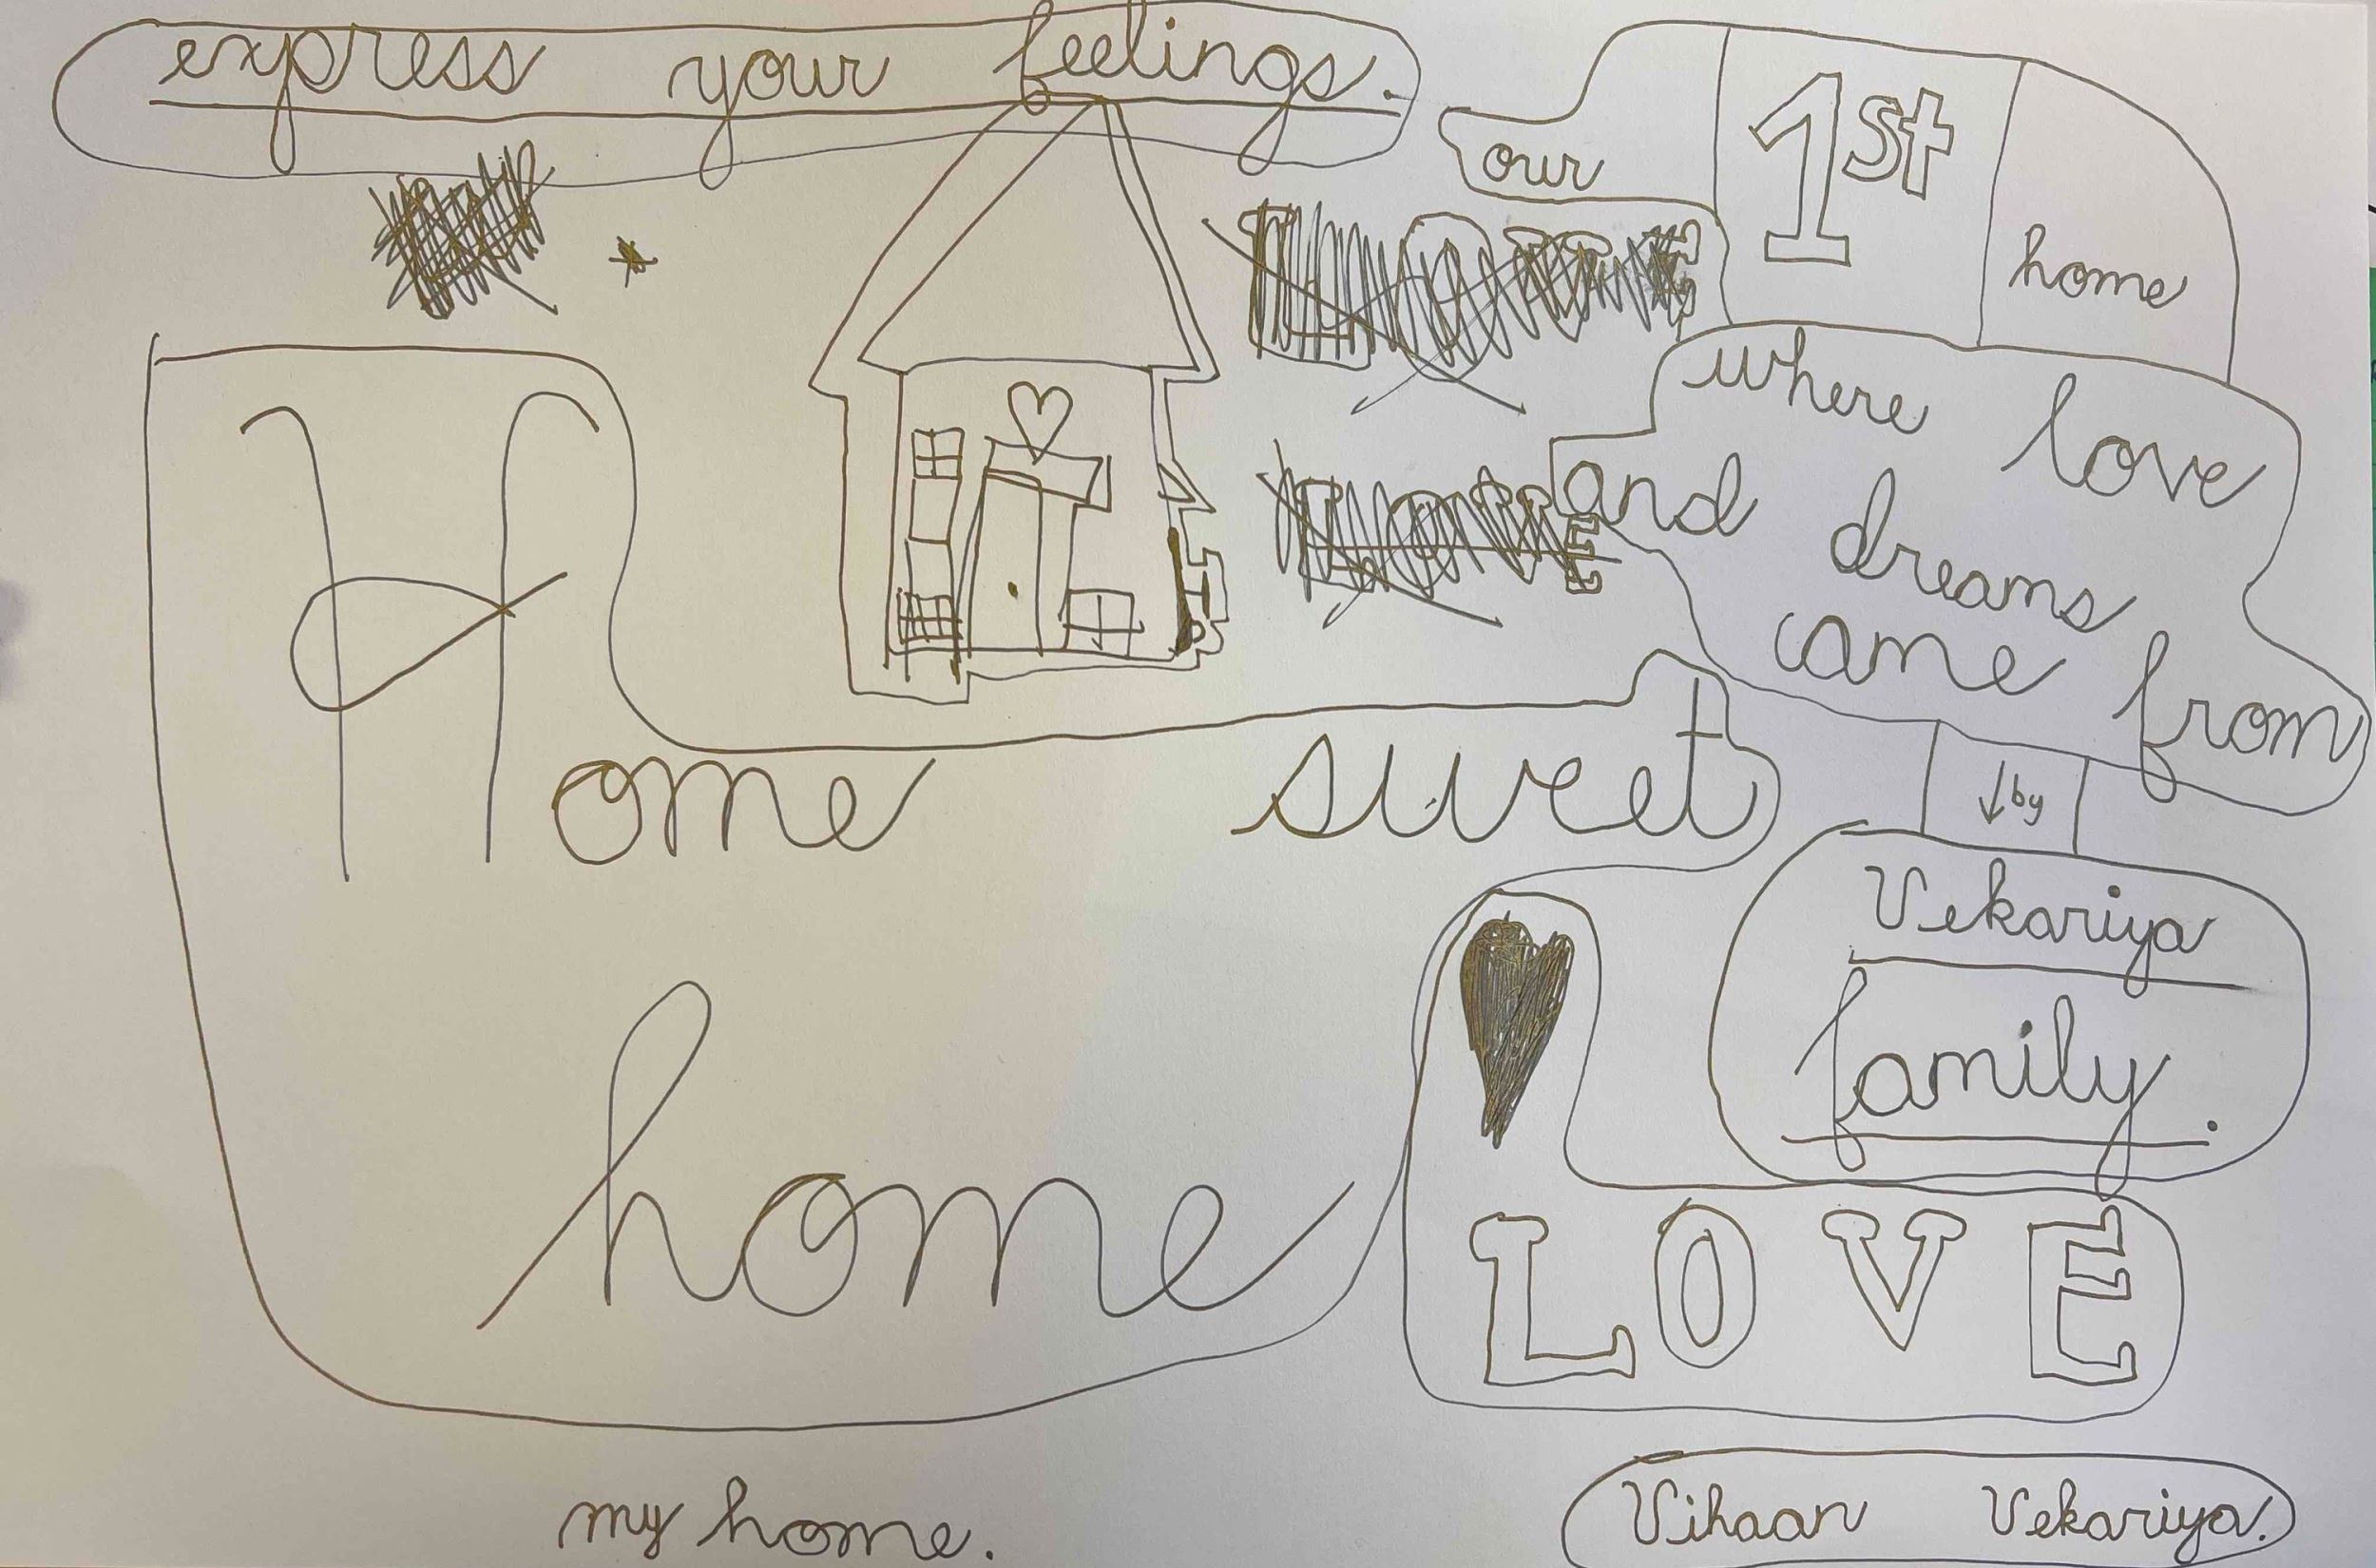 express your feelings.
our
1st
home
where love
and dreams
came from
↓by
Vekariya
family.
Home sweet
home
LOVE
my home.
Vihaan Vekariya.